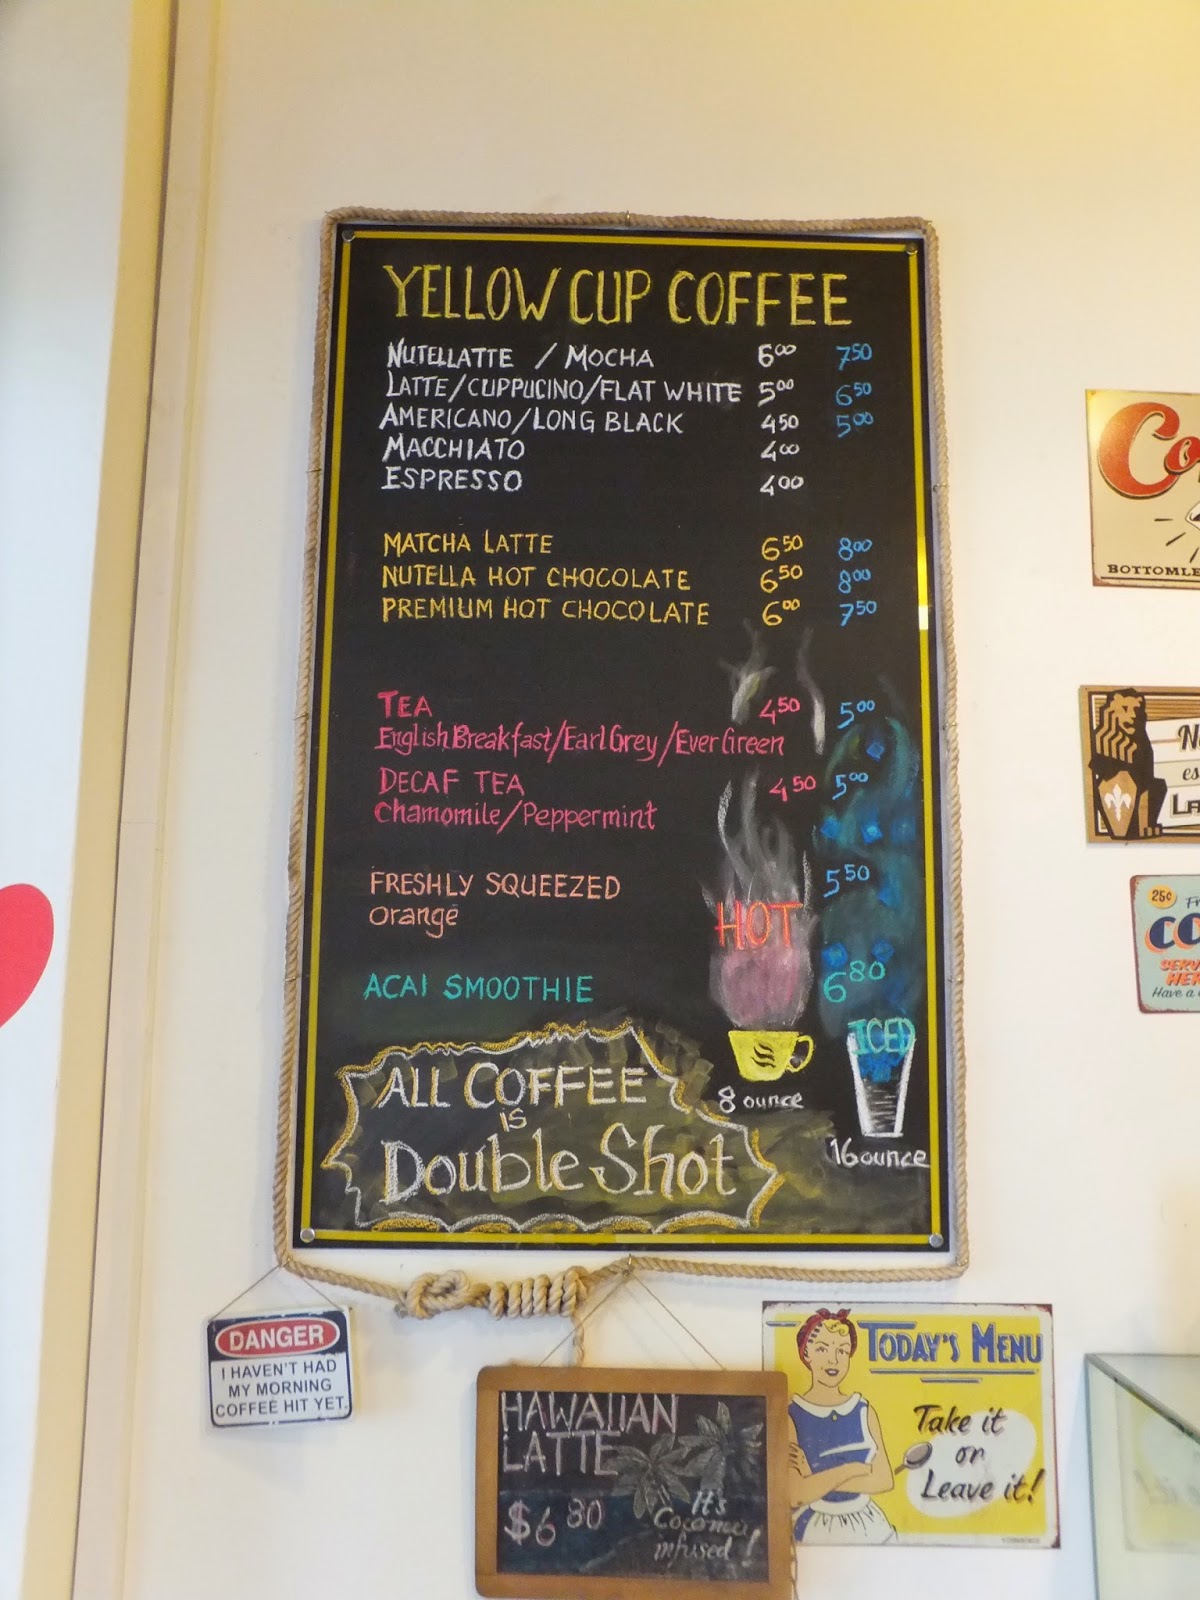 YELLOW CUP COFFEE
NUTELLATTE / MOCHA 6.00 7.50
LATTE/CUPPUCINO/FLAT WHITE 5.00 6.50
AMERICANO/LONG BLACK 4.50 5.00
MACCHIATO 4.00
ESPRESSO 4.00
MATCHA LATTE 6.50 8.00
NUTELLA HOT CHOCOLATE 6.50 8.00
PREMIUM HOT CHOCOLATE 6.00 7.50
TEA 4.50 5.00
English Breakfast/Earl Grey/Ever Green
DECAF TEA 4.50 5.00
Chamomile/Peppermint
FRESHLY SQUEEZED 5.50
orange
HOT
ACAI SMOOTHIE 6.80
ICED
ALL COFFEE
IS
Double Shot
8 ounce
16 ounce
DANGER
I HAVEN'T HAD
MY MORNING
COFFEE HIT YET.
HAWAIIAN
LATTE
$6.80
It's
infused!
TODAY'S MENU
Take it
or
Leave it!
Co
BOTTOMLE
N
es
LA
25¢
Fr
CO
SERV
HER
Have a